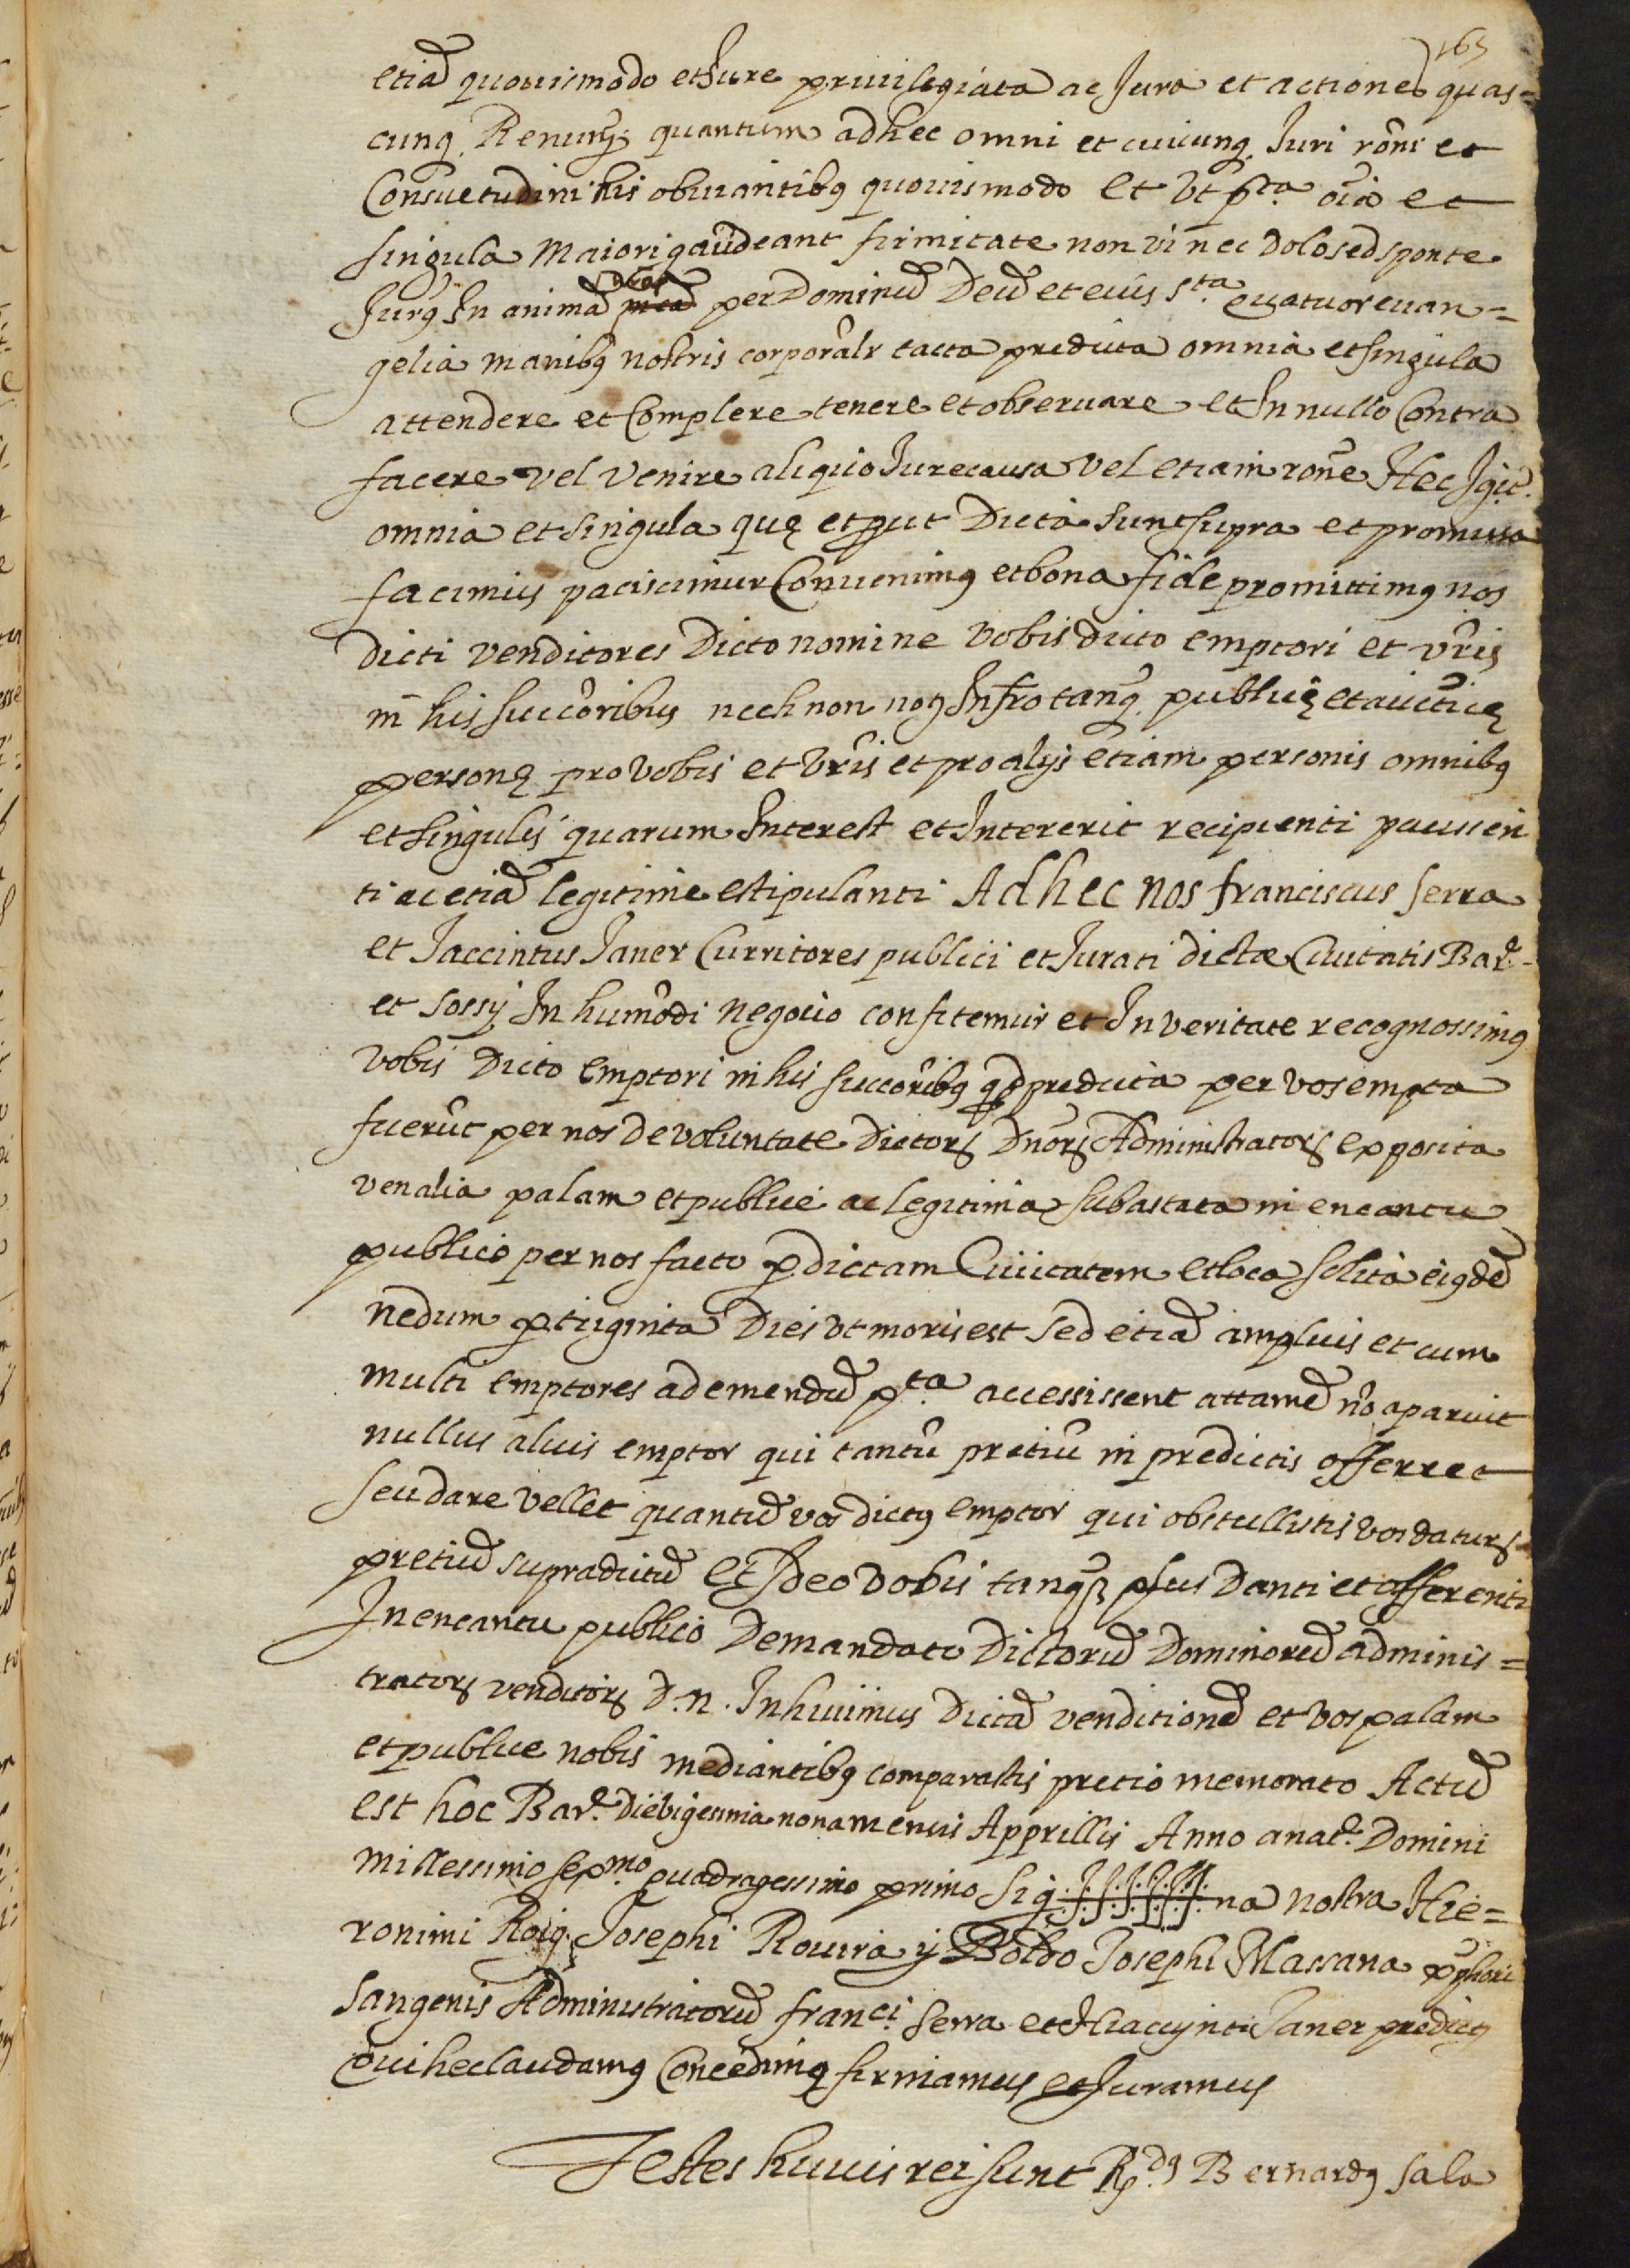 165
etiã quovismodo et Jure privilegiata ac Jura et actiones quas=
cunq. Renunș quantum adhec omni et cuicunq. Juri rôni et
Consuetudini his obviantibꝯ quovismodo Et Vt p.ta oîa et
singula Maiori gaudeant firmitate non vi nec dolo sed sponte
Jurꝯ In animã per Dominũ Deũ et eius s.ta quatuor evan=
gelia manibꝯ nostris corporâlr tacta predicta omnia et singula
attendere et Complere tenere et observare et In nullo Contra
facere vel venire aliquo Jure causa vel etiam rône Hec Igit.
omnia et singula quę et prout Dicta sunt supra et promissa
facimus paciscimur Convenimꝯ et bona fide promittimꝯ nos
dicti venditores Dicto nomine Vobis dicto emptori et vr̃is
in his succôribus nech non notꝯ Infr̃o tanq. publicę et autticę
personę pro Vobis et Vr̃is et pro alijs etiam personis omnibꝯ
et singulis quarum Interest et Intererit recipienti pacissen
ti ac etiã legitime estipulanti Ad hec nos franciscus Serra
et Jaccintus Janer Curritores publici et Jurati dictæ Civitatis Bar.
et sossÿ In humôdi negocio confitemur et In veritate recognossimꝯ
Vobis Dicto emptori in his succôribꝯ qd predicta per vos empta
fuerũt per nos de voluntate Dictorꝝ Dnôrꝝ Administratorꝝ exposita
venalia palam et publice ac legitima subastata in encantu
publico per nos facto ꝑ dictam Civitatem et loca solita eiꝯdẽ
nedum ꝑ triginta Dies vt moris est sed etiã amplius et cum
multi emptores ad emendũ p.ta accessissent attamẽ nô aparuit
nullus alius emptor qui tantũ pretiũ in predictis offerret
seu dare vellet quantũ vos dictꝯ emptor qui obstullistis vos daturꝝ
pretiũ supradictũ Et Ideo Vobis tanqꝫ plus Danti et offerenti
In encantu publico De mandato Dictorũ Dominorũ adminis=
tratorꝝ venditorꝝ D. n. Inhivimus Dictã venditionẽ et vos palam
et publice nobis mediantibꝯ comparastis pretio memorato Actũ
est hoc Bar. Die bigesima nona mensis Apprillis Anno a nat. Domini
millessimo sep.mo quadragessimo primo Sig na nostra Hie=
ronimi Roig Josephi Rovira ÿ Boldo Josephi Massana
sangenis Administratorũ franc.i Serra et Hiaccynti Janer predictꝝ
qui hec laudamꝯ Concedimꝯ firmamus et Juramus
Testes huius rei sunt R.dꝯ Bernardꝯ Sala